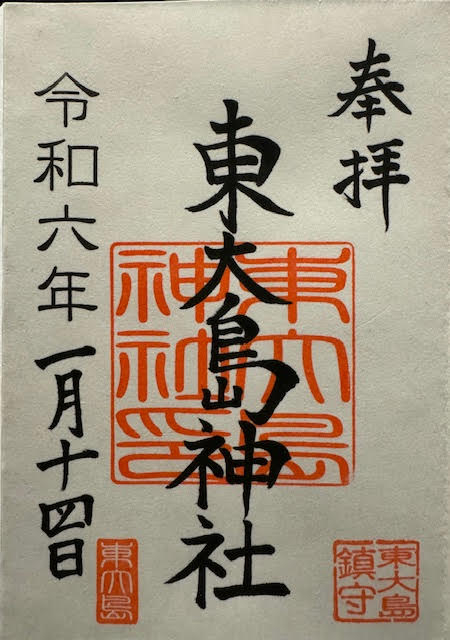 奉拝
東大島神社
令和六年一月十四日
東大島神社印
東大島
東大島鎮守